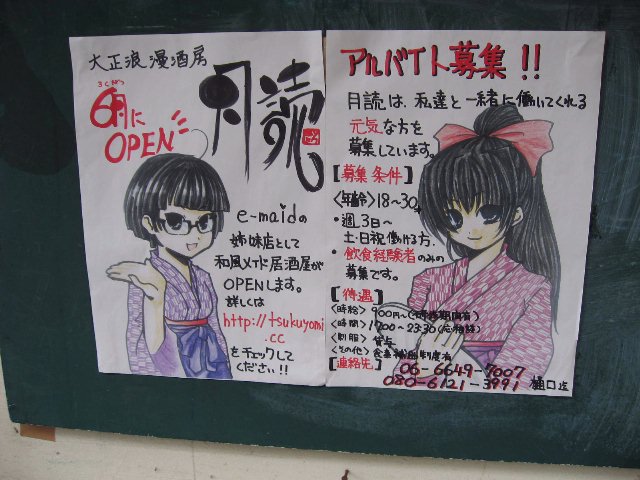 大正浪漫酒房
ろくがつ
6月に
OPEN
月読
e-maidの
姉妹店として
和風メイド居酒屋が
OPENします。
詳しくは
http://tsukuyomi
.cc
をチェックして
ください!!
アルバイト募集!!
月読は、私達と一緒に働いてくれる
元気な方を
募集しています。
[募集条件]
<年齢>18~30
・週3日~
土・日祝働ける方.
・飲食経験者のみの
募集です。
[待遇]
<時給>900円~
<時間>17:00~23:30(応相談)
<制服>貸与
<その他>食事補助制度有
[連絡先]
06-6649-7007
080-6121-3991
樋口迄